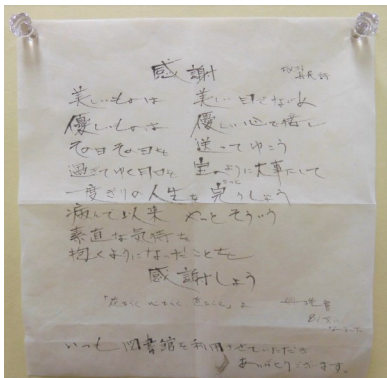 感謝
坂村真民詩
美しいものは 美しい目でながめ
優しいものは 優しい心で接し
その日その日を 送ってゆこう
過ぎてゆく月日を 宝のように大事にして
一度きりの人生を 完りしよう
病して以来 やっとそういう
素直な気持を
抱くようになったことを
感謝しよう
いつも図書館を利用させていただき
ありがとうございます。